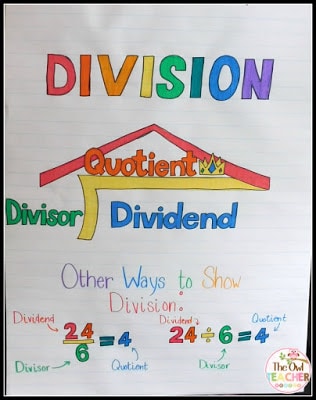 DIVISION
Quotient
Divisor Dividend
Other Ways to Show
Division:
Dividend Dividend Quotient
24/6 = 4 24 ÷ 6 = 4
Divisor Quotient Divisor
The Owl
TEACHER